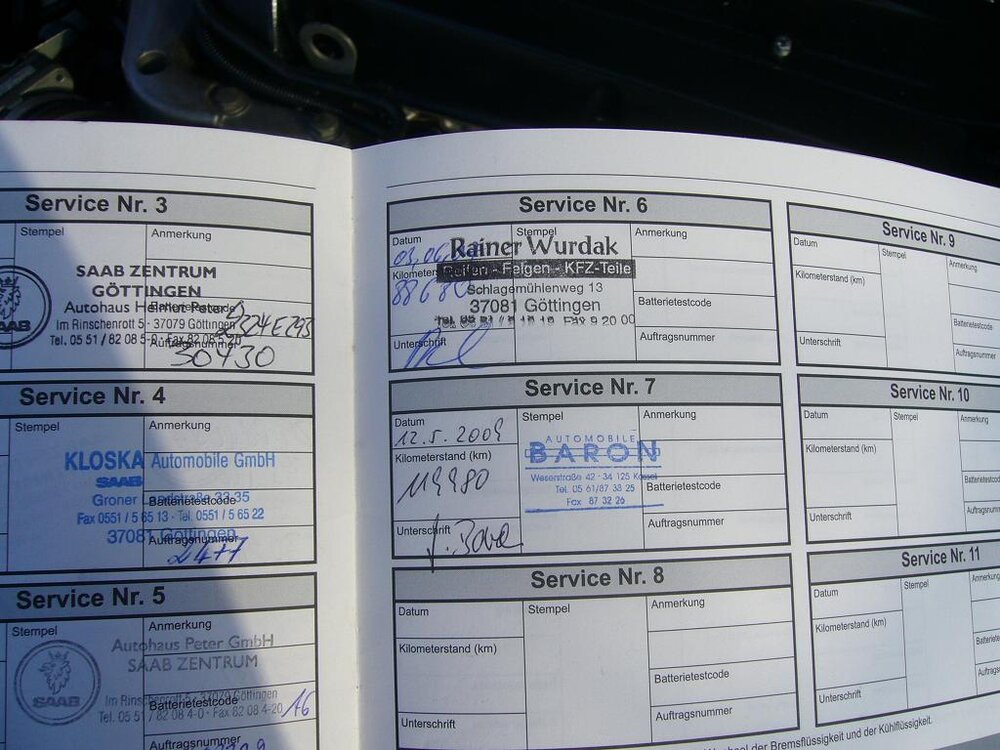 Service Nr. 3
Stempel
Anmerkung
SAAB ZENTRUM
GÖTTINGEN
Autohaus Helmut Peter
Im Rinschenrott 5 · 37079 Göttingen
Tel. 05 51 / 82 08 5-0 · Fax 82 08 5-20
Auftragsnummer
50430
SAAB
Service Nr. 4
Stempel
Anmerkung
KLOSKA Automobile GmbH
SAAB
Groner Landstraße 33-35
Batterietestcode
Fax 0551 / 5 65 13 · Tel. 0551 / 5 65 22
37081 Göttingen
Auftragsnummer
2477
Service Nr. 5
Stempel
Anmerkung
Autohaus Peter GmbH
SAAB ZENTRUM
SAAB
Im Rinschenrott 5 · 37079 Göttingen
Batterietestcode
16
Tel. 05 51 / 82 08 4-0 · Fax 82 08 4-20
Auftragsnummer
Service Nr. 6
Datum
Stempel
Anmerkung
Rainer Wurdak
Reifen - Felgen - KFZ-Teile
88680
Schlagemühlenweg 13
37081 Göttingen
Batterietestcode
Unterschrift
Auftragsnummer
Service Nr. 7
Datum
Stempel
Anmerkung
12.5.2009
AUTOMOBILE
BARON
Kilometerstand (km)
Weserstraße 42 · 34 125 Kassel
119980
Tel. 05 61/87 38 25
Fax 87 32 26
Batterietestcode
Unterschrift
Auftragsnummer
Service Nr. 8
Datum
Stempel
Anmerkung
Kilometerstand (km)
Batterietestcode
Unterschrift
Auftragsnummer
Service Nr. 9
Datum
Stempel
Anmerkung
Kilometerstand (km)
Batterietestcode
Unterschrift
Auftragsnummer
Service Nr. 10
Datum
Stempel
Anmerkung
Kilometerstand (km)
Unterschrift
Service Nr. 11
Datum
Stempel
Anmerkung
Kilometerstand (km)
Unterschrift
der Bremsflüssigkeit und der Kühlflüssigkeit.